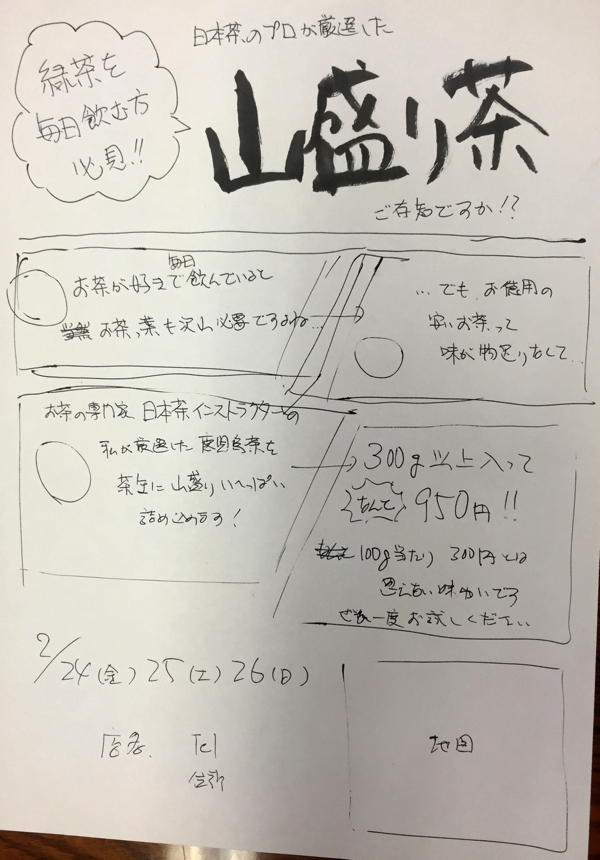 緑茶を
毎日飲む方
必見!!
日本茶のプロが厳選した
山盛り茶
ご存知ですか!?
毎日
お茶が好きで飲んでいると
お茶っ葉も沢山必要ですよね…
…でも お徳用の
安いお茶って
味が物足りなくて…
お茶の専門家 日本茶インストラクターの
私が厳選した鹿児島茶を
茶缶に山盛りいっぱい
詰め込めます!
300g以上入って
なんと 950円!!
100g当たり 300円とは
思えない味わいです
ぜひ一度お試しください
2/24(金) 25(土) 26(日)
店名 Tel
住所
地図